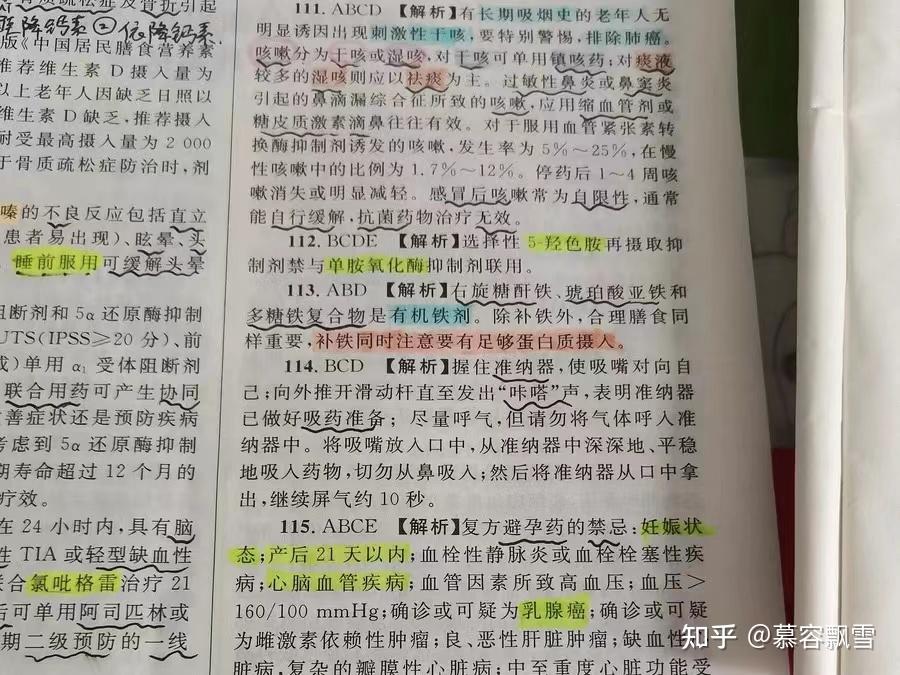 疏松症及骨折引起
降钙素 ② 依降钙素
版《中国居民膳食营养素
推荐维生素 D 摄入量为
以上老年人因缺乏日照以
维生素 D 缺乏,推荐摄入
耐受最高摄入量为 2 000
于骨质疏松症防治时,剂
嗪的不良反应包括直立
患者易出现)、眩晕、头
睡前服用可缓解头晕
阻断剂和 5α 还原酶抑制
UTS(IPSS≥20 分)、前
成)单用 α₁ 受体阻断剂
联合用药可产生协同
善症状还是预防疾病
考虑到 5α 还原酶抑制
期寿命超过 12 个月的
疗效。
在 24 小时内,具有脑
生 TIA 或轻型缺血性
联合氯吡格雷治疗 21
后可单用阿司匹林或
期二级预防的一线
111. ABCD 【解析】有长期吸烟史的老年人无
明显诱因出现刺激性干咳,要特别警惕,排除肺癌。
咳嗽分为干咳或湿咳,对干咳可单用镇咳药;对痰液
较多的湿咳则应以祛痰为主。过敏性鼻炎或鼻窦炎
引起的鼻滴漏综合征所致的咳嗽,应用缩血管剂或
糖皮质激素滴鼻往往有效。对于服用血管紧张素转
换酶抑制剂诱发的咳嗽,发生率为 5%～25%,在慢
性咳嗽中的比例为 1.7%～12%。停药后 1～4 周咳
嗽消失或明显减轻。感冒后咳嗽常为自限性,通常
能自行缓解,抗菌药物治疗无效。
112. BCDE 【解析】选择性 5-羟色胺再摄取抑
制剂禁与单胺氧化酶抑制剂联用。
113. ABD 【解析】右旋糖酐铁、琥珀酸亚铁和
多糖铁复合物是有机铁剂。除补铁外,合理膳食同
样重要,补铁同时注意要有足够蛋白质摄入。
114. BCD 【解析】握住准纳器,使吸嘴对向自
己;向外推开滑动杆直至发出“咔嗒”声,表明准纳器
已做好吸药准备；尽量呼气,但请勿将气体呼入准
纳器中。将吸嘴放入口中,从准纳器中深深地、平稳
地吸入药物,切勿从鼻吸入;然后将准纳器从口中拿
出,继续屏气约 10 秒。
115. ABCE 【解析】复方避孕药的禁忌:妊娠状
态;产后 21 天以内;血栓性静脉炎或血栓栓塞性疾
病;心脑血管疾病;血管因素所致高血压;血压>
160/100 mmHg;确诊或可疑为乳腺癌;确诊或可疑
为雌激素依赖性肿瘤;良、恶性肝脏肿瘤;缺血性
脏病,复杂的瓣膜性心脏病;中至重度心脏功能受
知乎 @慕容飘雪